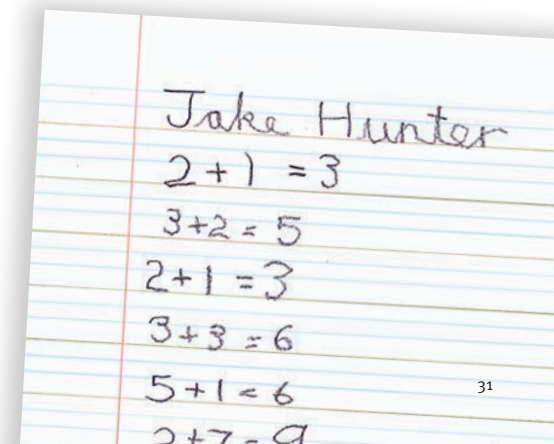 Jake Hunter
2 + 1 = 3
3 + 2 = 5
2 + 1 = 3
3 + 3 = 6
5 + 1 = 6
31
2 + 7 = 9